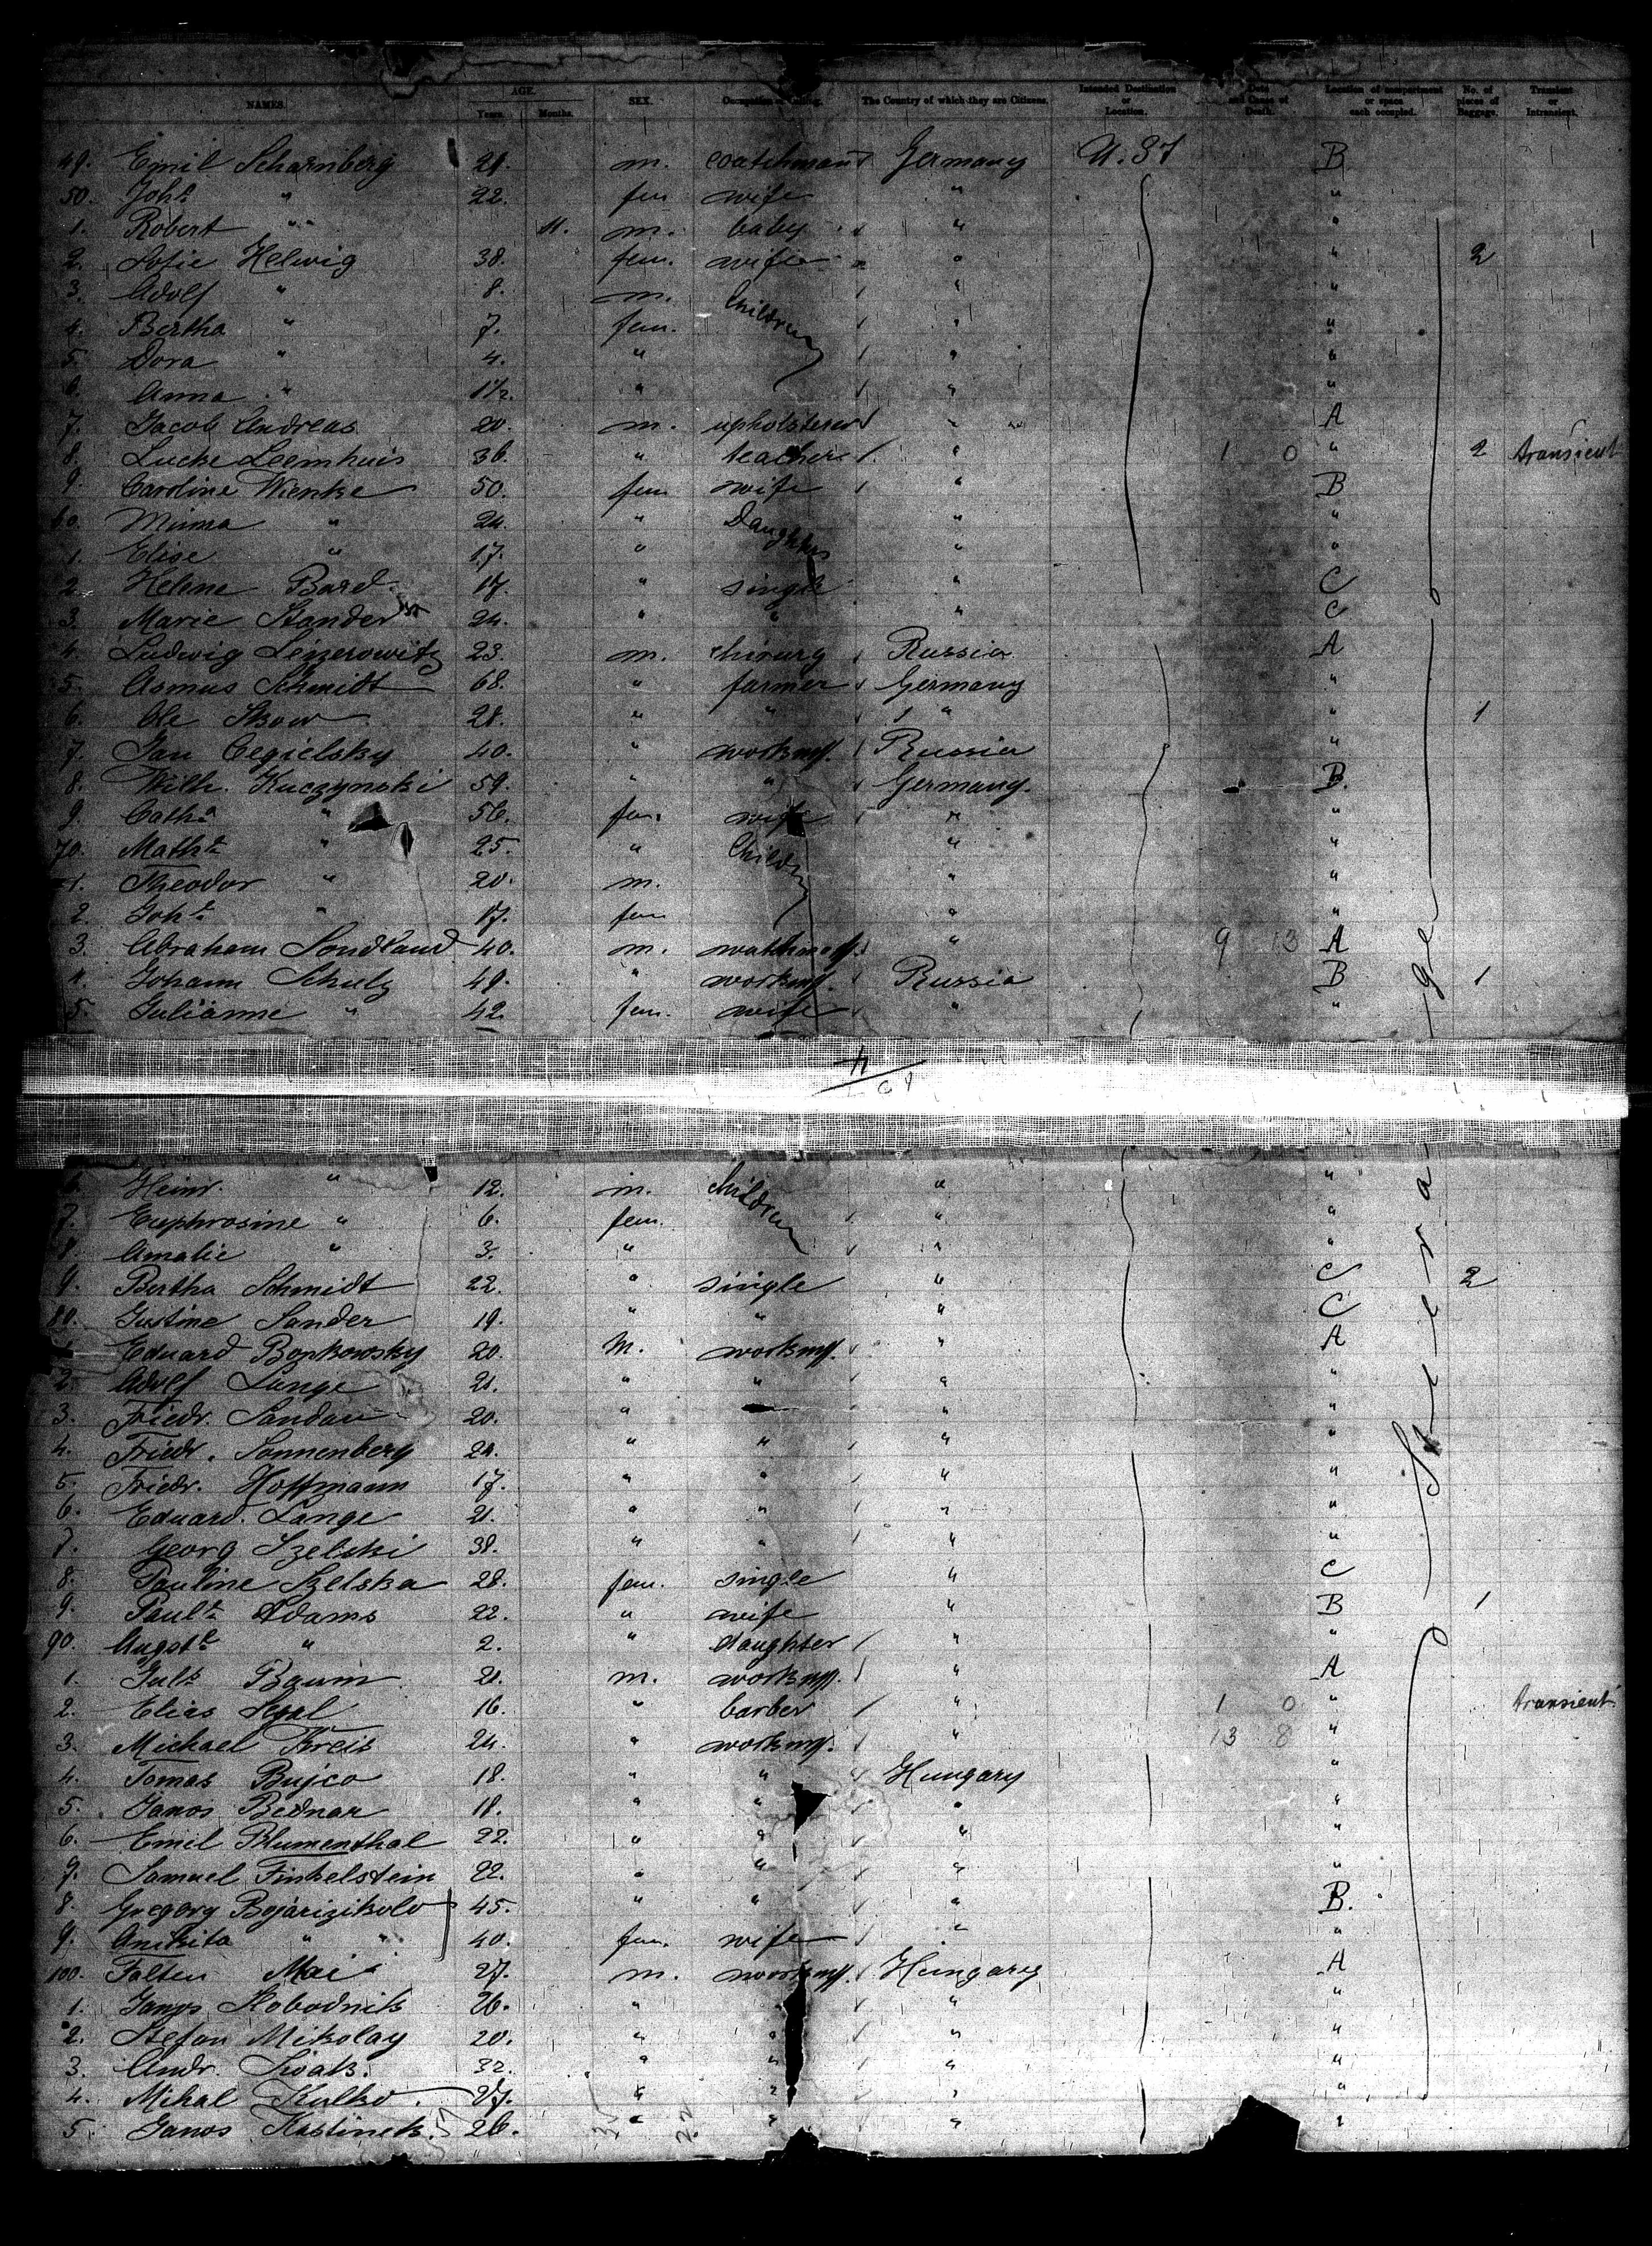 NAMES. AGE. SEX. Occupation or Calling. The Country of which they are Citizens. Intended Destination or Location. Date and Cause of Death. Location of compartment or space each occupied. No. of pieces of Baggage. Transient or Intransient.
Years. Months.
49. Emil Scharnberg 21. m. Germany U. St B
50. Joh.e " 22. fem wife " "
1. Robert " 11. m. baby " "
2. Helwig 38. fem. wife " " 2
3. Adolf " 8. m. Children " "
4. Bertha " 7. fem. " "
5. Dora " 4. " " "
6. Anna " 1 1/2. " " "
7. Jacob Andreas 20. m. upholsterer " A
8. Lucke Leemhuis 36. " teacher " 1 0 " 2 transient
9. Caroline Wienke 50. fem wife " B
60. Minna " 24. " Daughters " "
1. Elise " 17. " " "
2. Helene Bard 17. " single " C
3. Marie Stander 24. " " " C
4. Ludwig Leizerowitz 23. m. chirurg Russia A
5. Asmus Schmidt 68. " farmer Germany "
6. Ole Skow 28. " " " " 1
7. Jan Cegielsky 40. " workmg. Russia "
8. Wilh. Kuczynski 59. " " Germany. B.
9. Cath.a " 56. fem. wife " "
70. Math.e " 25. " Children " "
1. Theodor " 20. m. " "
2. Joh.e " 17. fem " "
3. Abraham Sondland 40. m. " 9 13 A
4. Johann Schulz 49. " workmg. Russia B 1
5. Julianne " 42. fem. wife " "
6. Heinr. " 12. m. children " "
7. Euphrosine " 6. fem. " "
8. Amalie " 3. " " "
9. Bertha Schmidt 22. " single " C 2
80. Justine Sander 19. " " " C
Eduard Bonkowsky 20. m. workmg. " A
2. Adolf Lange 21. " " " "
3. Friedr. Sandau 20. " " "
4. Friedr. Sonnenberg 24. " " " "
5. Friedr. Hoffmann 17. " " " "
6. Eduard. Lange 21. " " " "
7. Georg Szelski 38. " " " "
8. Pauline Szelska 28. fem. single " C
9. Paul.e Adams 22. " wife " B 1
90. Augst.e " 2. " daughter " "
1. Juls Baum 21. m. workmg. " A
2. Elias Segal 16. " barber " 1 0 " transient
3. Michael Kreis 24. " workmg. " 13 8 "
4. Tomas Bujco 18. " " Hungary "
5. Janos Bednar 18. " " " "
6. Emil Blumenthal 22. " " " "
7. Samuel Finkelstein 22. " " " "
8. Gregory 45. " " " B.
9. Anikita " 40. fem. wife " "
100. Falten Mai 27. m. workmg. Hungary A
1. Janos Slobodnik 26. " " " "
2. Stefan Mikolay 20. " " " "
3. Andr. Siwak. 32. " " " "
4. Mihal Kulko. 27. " " " "
5. Janos Kastinek. 26. " " " "
Steerage